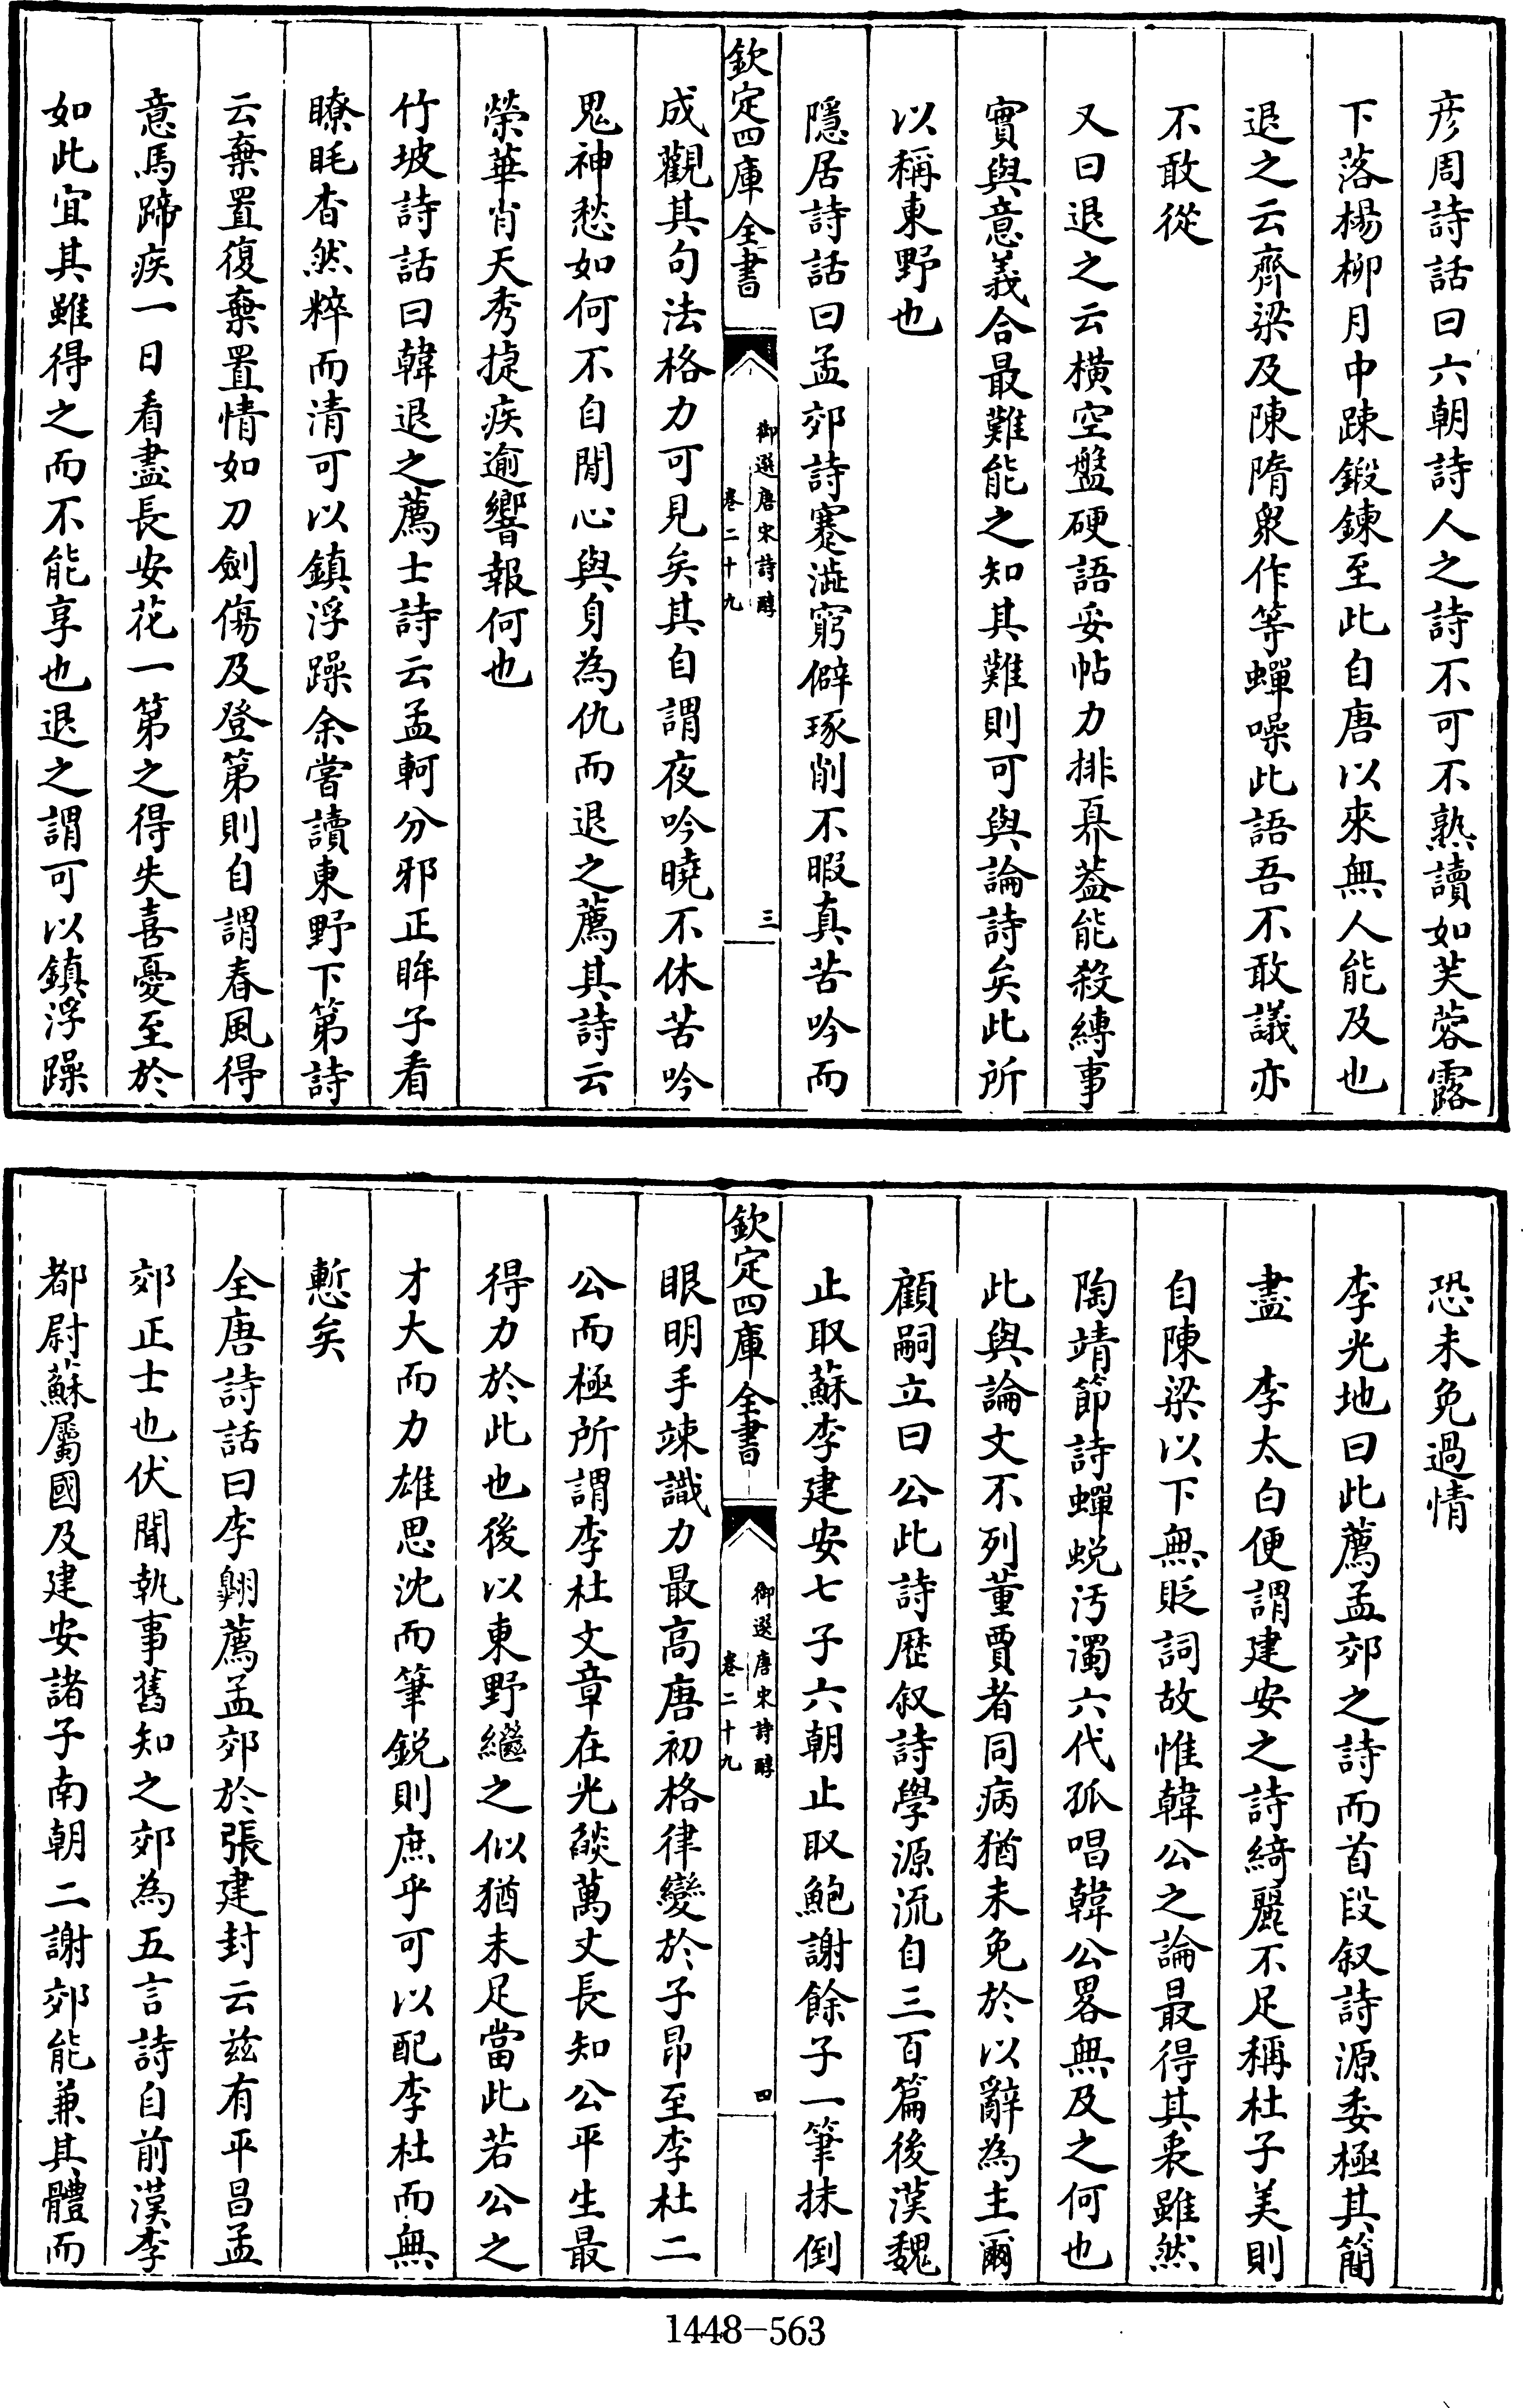 彦周詩話曰六朝詩人之詩不可不熟讀如芙蓉露
下落楊柳月中踈鍛鍊至此自唐以來無人能及也
退之云齊梁及陳隋衆作等蟬噪此語吾不敢議亦
不敢從
又曰退之云橫空盤硬語妥帖力排奡葢能殺縛事
實與意義合最難能之知其難則可與論詩矣此所
以稱東野也
隱居詩話曰孟郊詩蹇澁窮僻琢削不暇真苦吟而
欽定四庫全書
御選唐宋詩醇
卷二十九
三
成觀其句法格力可見矣其自謂夜吟曉不休苦吟
鬼神愁如何不自閒心與身為仇而退之薦其詩云
榮華肖天秀捷疾逾響報何也
竹坡詩話曰韓退之薦士詩云孟軻分邪正眸子看
瞭眊杳然粹而清可以鎮浮躁余嘗讀東野下第詩
云棄置復棄置情如刀劍傷及登第則自謂春風得
意馬蹄疾一日看盡長安花一第之得失喜憂至於
如此宜其雖得之而不能享也退之謂可以鎮浮躁
恐未免過情
李光地曰此薦孟郊之詩而首段叙詩源委極其簡
盡　李太白便謂建安之詩綺麗不足稱杜子美則
自陳梁以下無貶詞故惟韓公之論最得其衷雖然
陶靖節詩蟬蛻汚濁六代孤唱韓公畧無及之何也
此與論文不列董賈者同病猶未免於以辭為主爾
顧嗣立曰公此詩歷叙詩學源流自三百篇後漢魏
止取蘇李建安七子六朝止取鮑謝餘子一筆抹倒
欽定四庫全書
御選唐宋詩醇
卷二十九
四
眼明手竦識力最高唐初格律變於子昂至李杜二
公而極所謂李杜文章在光燄萬丈長知公平生最
得力於此也後以東野繼之似猶未足當此若公之
才大而力雄思沈而筆鋭則庶乎可以配李杜而無
慙矣
全唐詩話曰李翱薦孟郊於張建封云兹有平昌孟
郊正士也伏聞執事舊知之郊為五言詩自前漢李
都尉蘇屬國及建安諸子南朝二謝郊能兼其體而
1448-563